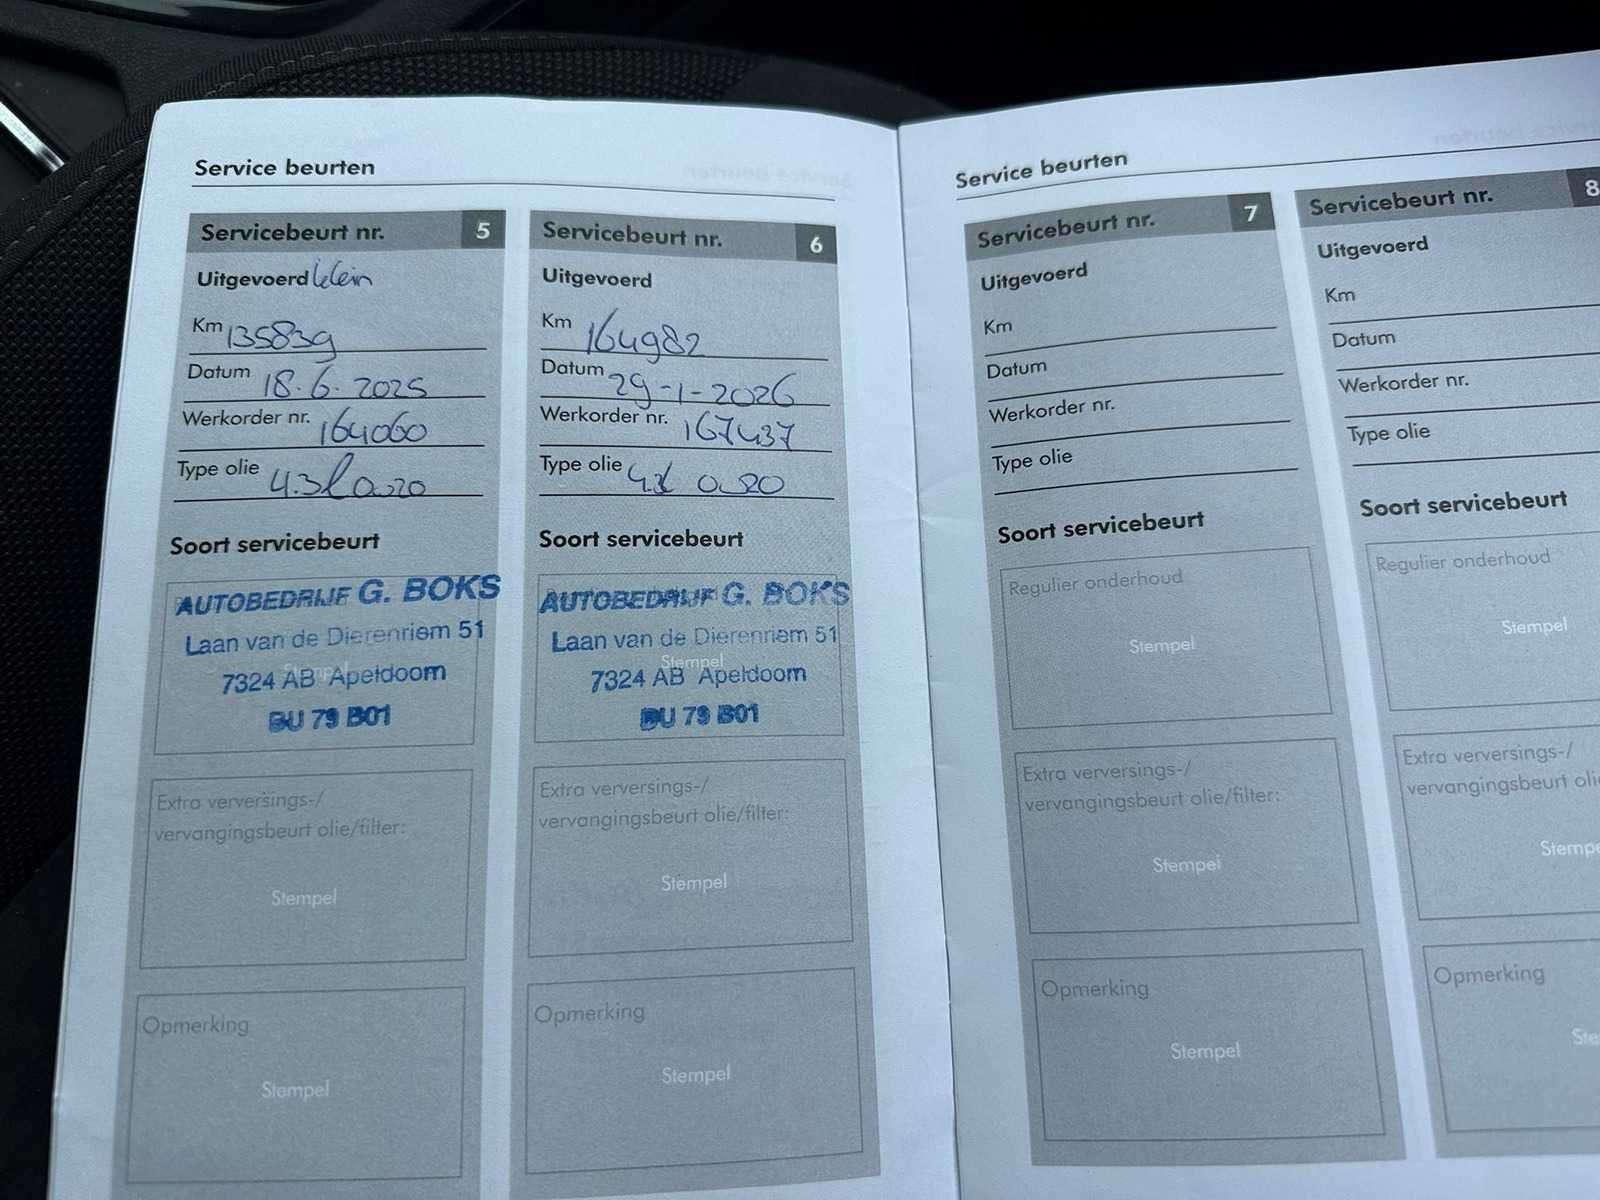 Service beurten
Servicebeurt nr. 5
Uitgevoerd klein
Km 135839
Datum 18.6.2025
Werkorder nr. 164060
Type olie 4.3l 0w20
Soort servicebeurt
AUTOBEDRIJF G. BOKS
Laan van de Dierenriem 51
Stempel
7324 AB Apeldoorn
BU 79 B01
Extra verversings-/
vervangingsbeurt olie/filter:
Stempel
Opmerking
Stempel
Servicebeurt nr. 6
Uitgevoerd
Km 164982
Datum 29-1-2026
Werkorder nr. 167437
Type olie 0w20
Soort servicebeurt
AUTOBEDRIJF G. BOKS
Laan van de Dierenriem 51
Stempel
7324 AB Apeldoorn
BU 79 B01
Extra verversings-/
vervangingsbeurt olie/filter:
Stempel
Opmerking
Stempel
Service beurten
Servicebeurt nr. 7
Uitgevoerd
Km
Datum
Werkorder nr.
Type olie
Soort servicebeurt
Regulier onderhoud
Stempel
Extra verversings-/
vervangingsbeurt olie/filter:
Stempel
Opmerking
Stempel
Servicebeurt nr. 8
Uitgevoerd
Km
Datum
Werkorder nr.
Type olie
Soort servicebeurt
Regulier onderhoud
Stempel
Extra verversings-/
vervangingsbeurt oli
Stempe
Opmerking
Ste